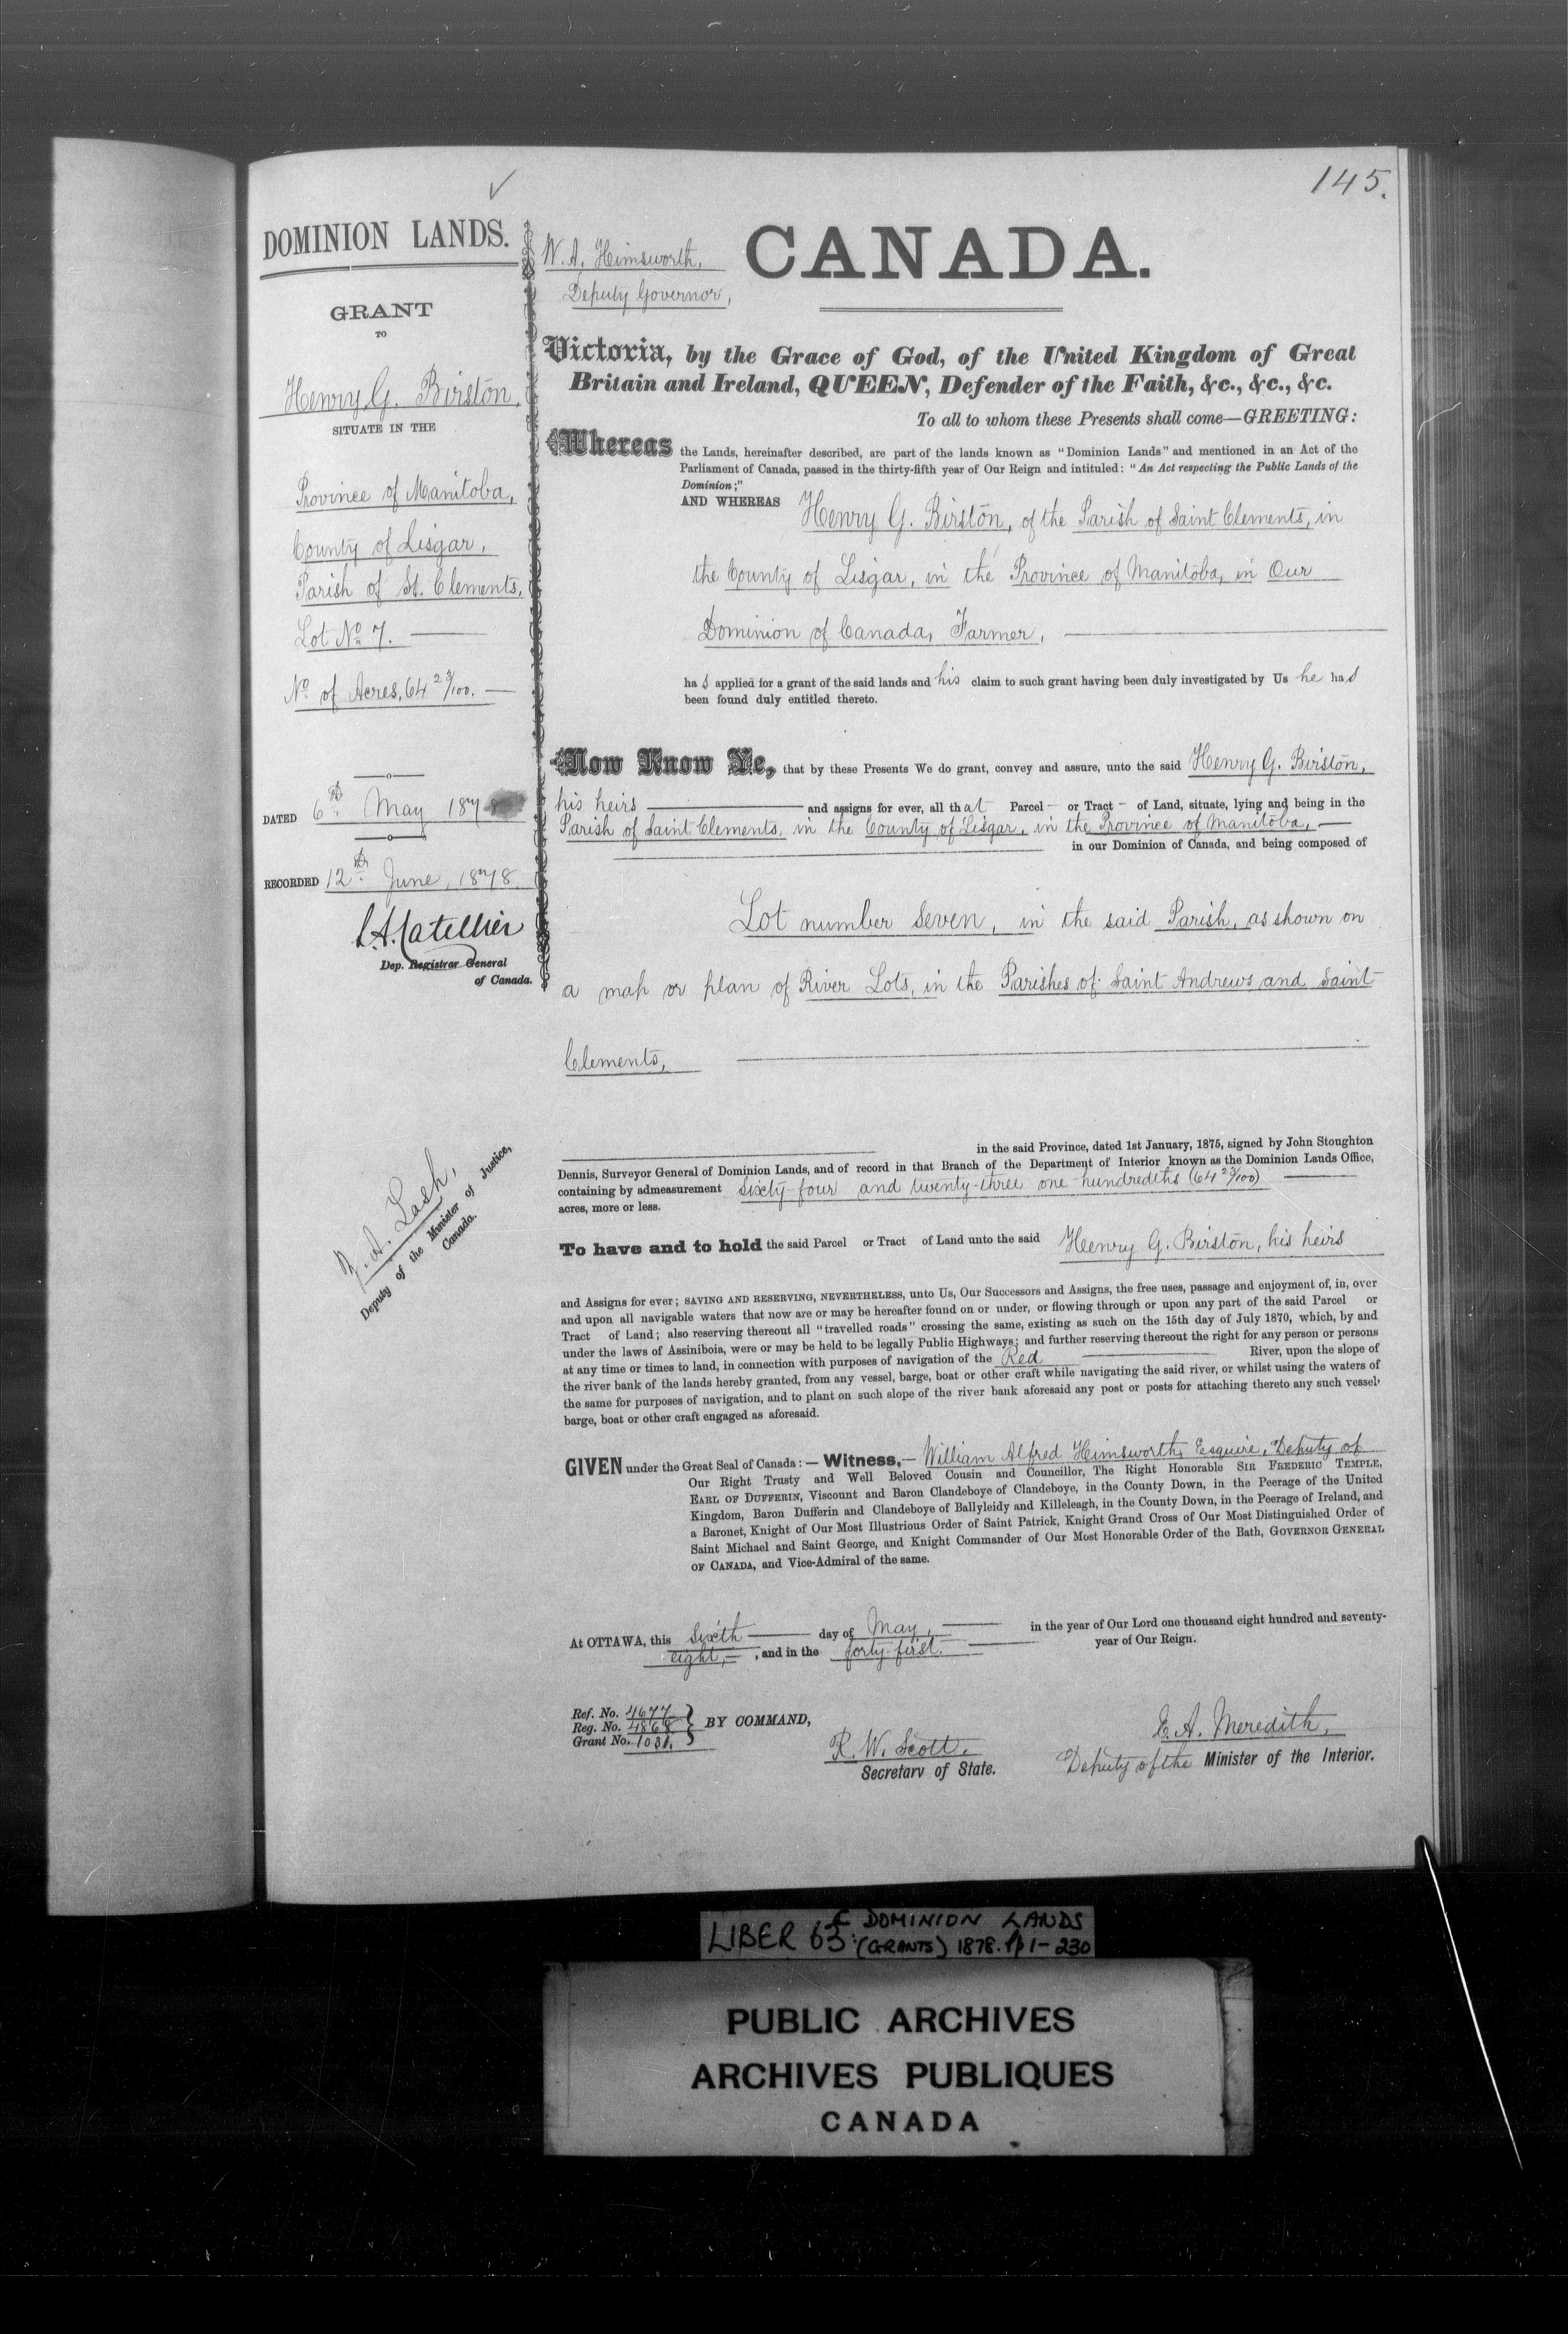 145.
DOMINION LANDS.
GRANT
TO
Henry G. Birston,
SITUATE IN THE
Province of Manitoba,
County of Lisgar,
Parish of St. Clements,
Lot No 7.
No of Acres, 64 23/100.
DATED 6th May 1878
RECORDED 12th June, 1878.
L.A. Catellier
Dep. Registrar General
of Canada.
Z. A. Lash,
Deputy of the Minister of Justice,
Canada.
W. A. Himsworth,
Deputy Governor,
CANADA.
Victoria, by the Grace of God, of the United Kingdom of Great
Britain and Ireland, QUEEN, Defender of the Faith, &c., &c., &c.
To all to whom these Presents shall come—GREETING:
Whereas the Lands, hereinafter described, are part of the lands known as "Dominion Lands" and mentioned in an Act of the
Parliament of Canada, passed in the thirty-fifth year of Our Reign and intituled: "An Act respecting the Public Lands of the
Dominion;"
AND WHEREAS Henry G. Birston, of the Parish of Saint Clements, in
the County of Lisgar, in the Province of Manitoba, in Our
Dominion of Canada, Farmer,
ha s applied for a grant of the said lands and his claim to such grant having been duly investigated by Us he has
been found duly entitled thereto.
Now Know Ye, that by these Presents We do grant, convey and assure, unto the said Henry G. Birston,
his heirs — and assigns for ever, all that Parcel – or Tract – of Land, situate, lying and being in the
Parish of Saint Clements, in the County of Lisgar, in the Province of Manitoba, —
in our Dominion of Canada, and being composed of
Lot number Seven, in the said Parish, as shown on
a map or plan of River Lots, in the Parishes of Saint Andrews and Saint
Clements,
in the said Province, dated 1st January, 1875, signed by John Stoughton
Dennis, Surveyor General of Dominion Lands, and of record in that Branch of the Department of Interior known as the Dominion Lands Office,
containing by admeasurement sixty-four and twenty-three one-hundredths (64 23/100)
acres, more or less.
To have and to hold the said Parcel or Tract of Land unto the said Henry G. Birston, his heirs
and Assigns for ever; SAVING AND RESERVING, NEVERTHELESS, unto Us, Our Successors and Assigns, the free uses, passage and enjoyment of, in, over
and upon all navigable waters that now are or may be hereafter found on or under, or flowing through or upon any part of the said Parcel or
Tract of Land; also reserving thereout all "travelled roads" crossing the same, existing as such on the 15th day of July 1870, which, by and
under the laws of Assiniboia, were or may be held to be legally Public Highways; and further reserving thereout the right for any person or persons
at any time or times to land, in connection with purposes of navigation of the Red River, upon the slope of
the river bank of the lands hereby granted, from any vessel, barge, boat or other craft while navigating the said river, or whilst using the waters of
the same for purposes of navigation, and to plant on such slope of the river bank aforesaid any post or posts for attaching thereto any such vessel,
barge, boat or other craft engaged as aforesaid.
GIVEN under the Great Seal of Canada:— Witness,— William Alfred Himsworth, Esquire, Deputy of
Our Right Trusty and Well Beloved Cousin and Councillor, The Right Honorable SIR FREDERIC TEMPLE,
EARL OF DUFFERIN, Viscount and Baron Clandeboye of Clandeboye, in the County Down, in the Peerage of the United
Kingdom, Baron Dufferin and Clandeboye of Ballyleidy and Killeleagh, in the County Down, in the Peerage of Ireland, and
a Baronet, Knight of Our Most Illustrious Order of Saint Patrick, Knight Grand Cross of Our Most Distinguished Order of
Saint Michael and Saint George, and Knight Commander of Our Most Honorable Order of the Bath, GOVERNOR GENERAL
OF CANADA, and Vice-Admiral of the same.
At OTTAWA, this Sixth day of May, in the year of Our Lord one thousand eight hundred and seventy-
eight,—, and in the forty-first. year of Our Reign.
Ref. No. 4677
Reg. No. 4868
Grant No. 1031.
BY COMMAND,
R. W. Scott,
Secretary of State.
E. A. Meredith,
Deputy of the Minister of the Interior.
LIBER 63: DOMINION LANDS
(GRANTS) 1878. pp 1-230
PUBLIC ARCHIVES
ARCHIVES PUBLIQUES
CANADA